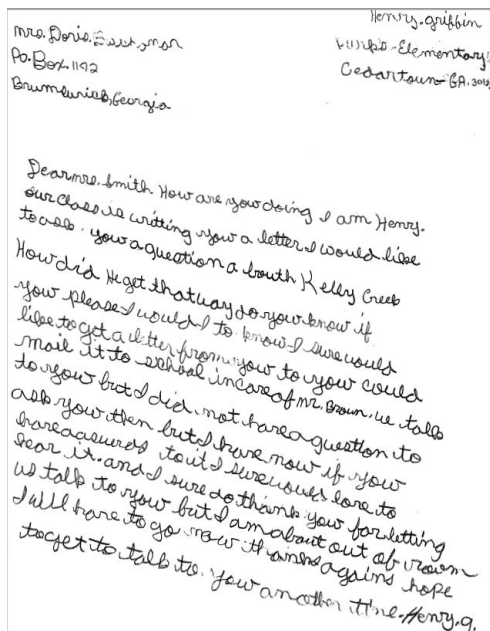 Henry. griffin
Elementary
Cedartown GA. 301
Mrs. Doris.
Po. Box. 1142
Georgia
Dear mrs. Smith How are you doing I am Henry.
our class is writing you a letter I would like
to ask. you a question a bouth Kelly Creek
How did He get that way do you know if
you please I would I to know I sure would
like to get a letter from you to you could
mail it to school in care of Mr. Brown. we talk
to you but I did. not have a question to
ask you then but I have now if you
have a to it I sure would love to
hear it. and I sure do thank you for letting
us talk to you but I am about out of room
I will have to go now thanks agains hope
to get to talk to. you another time. Henry. g.